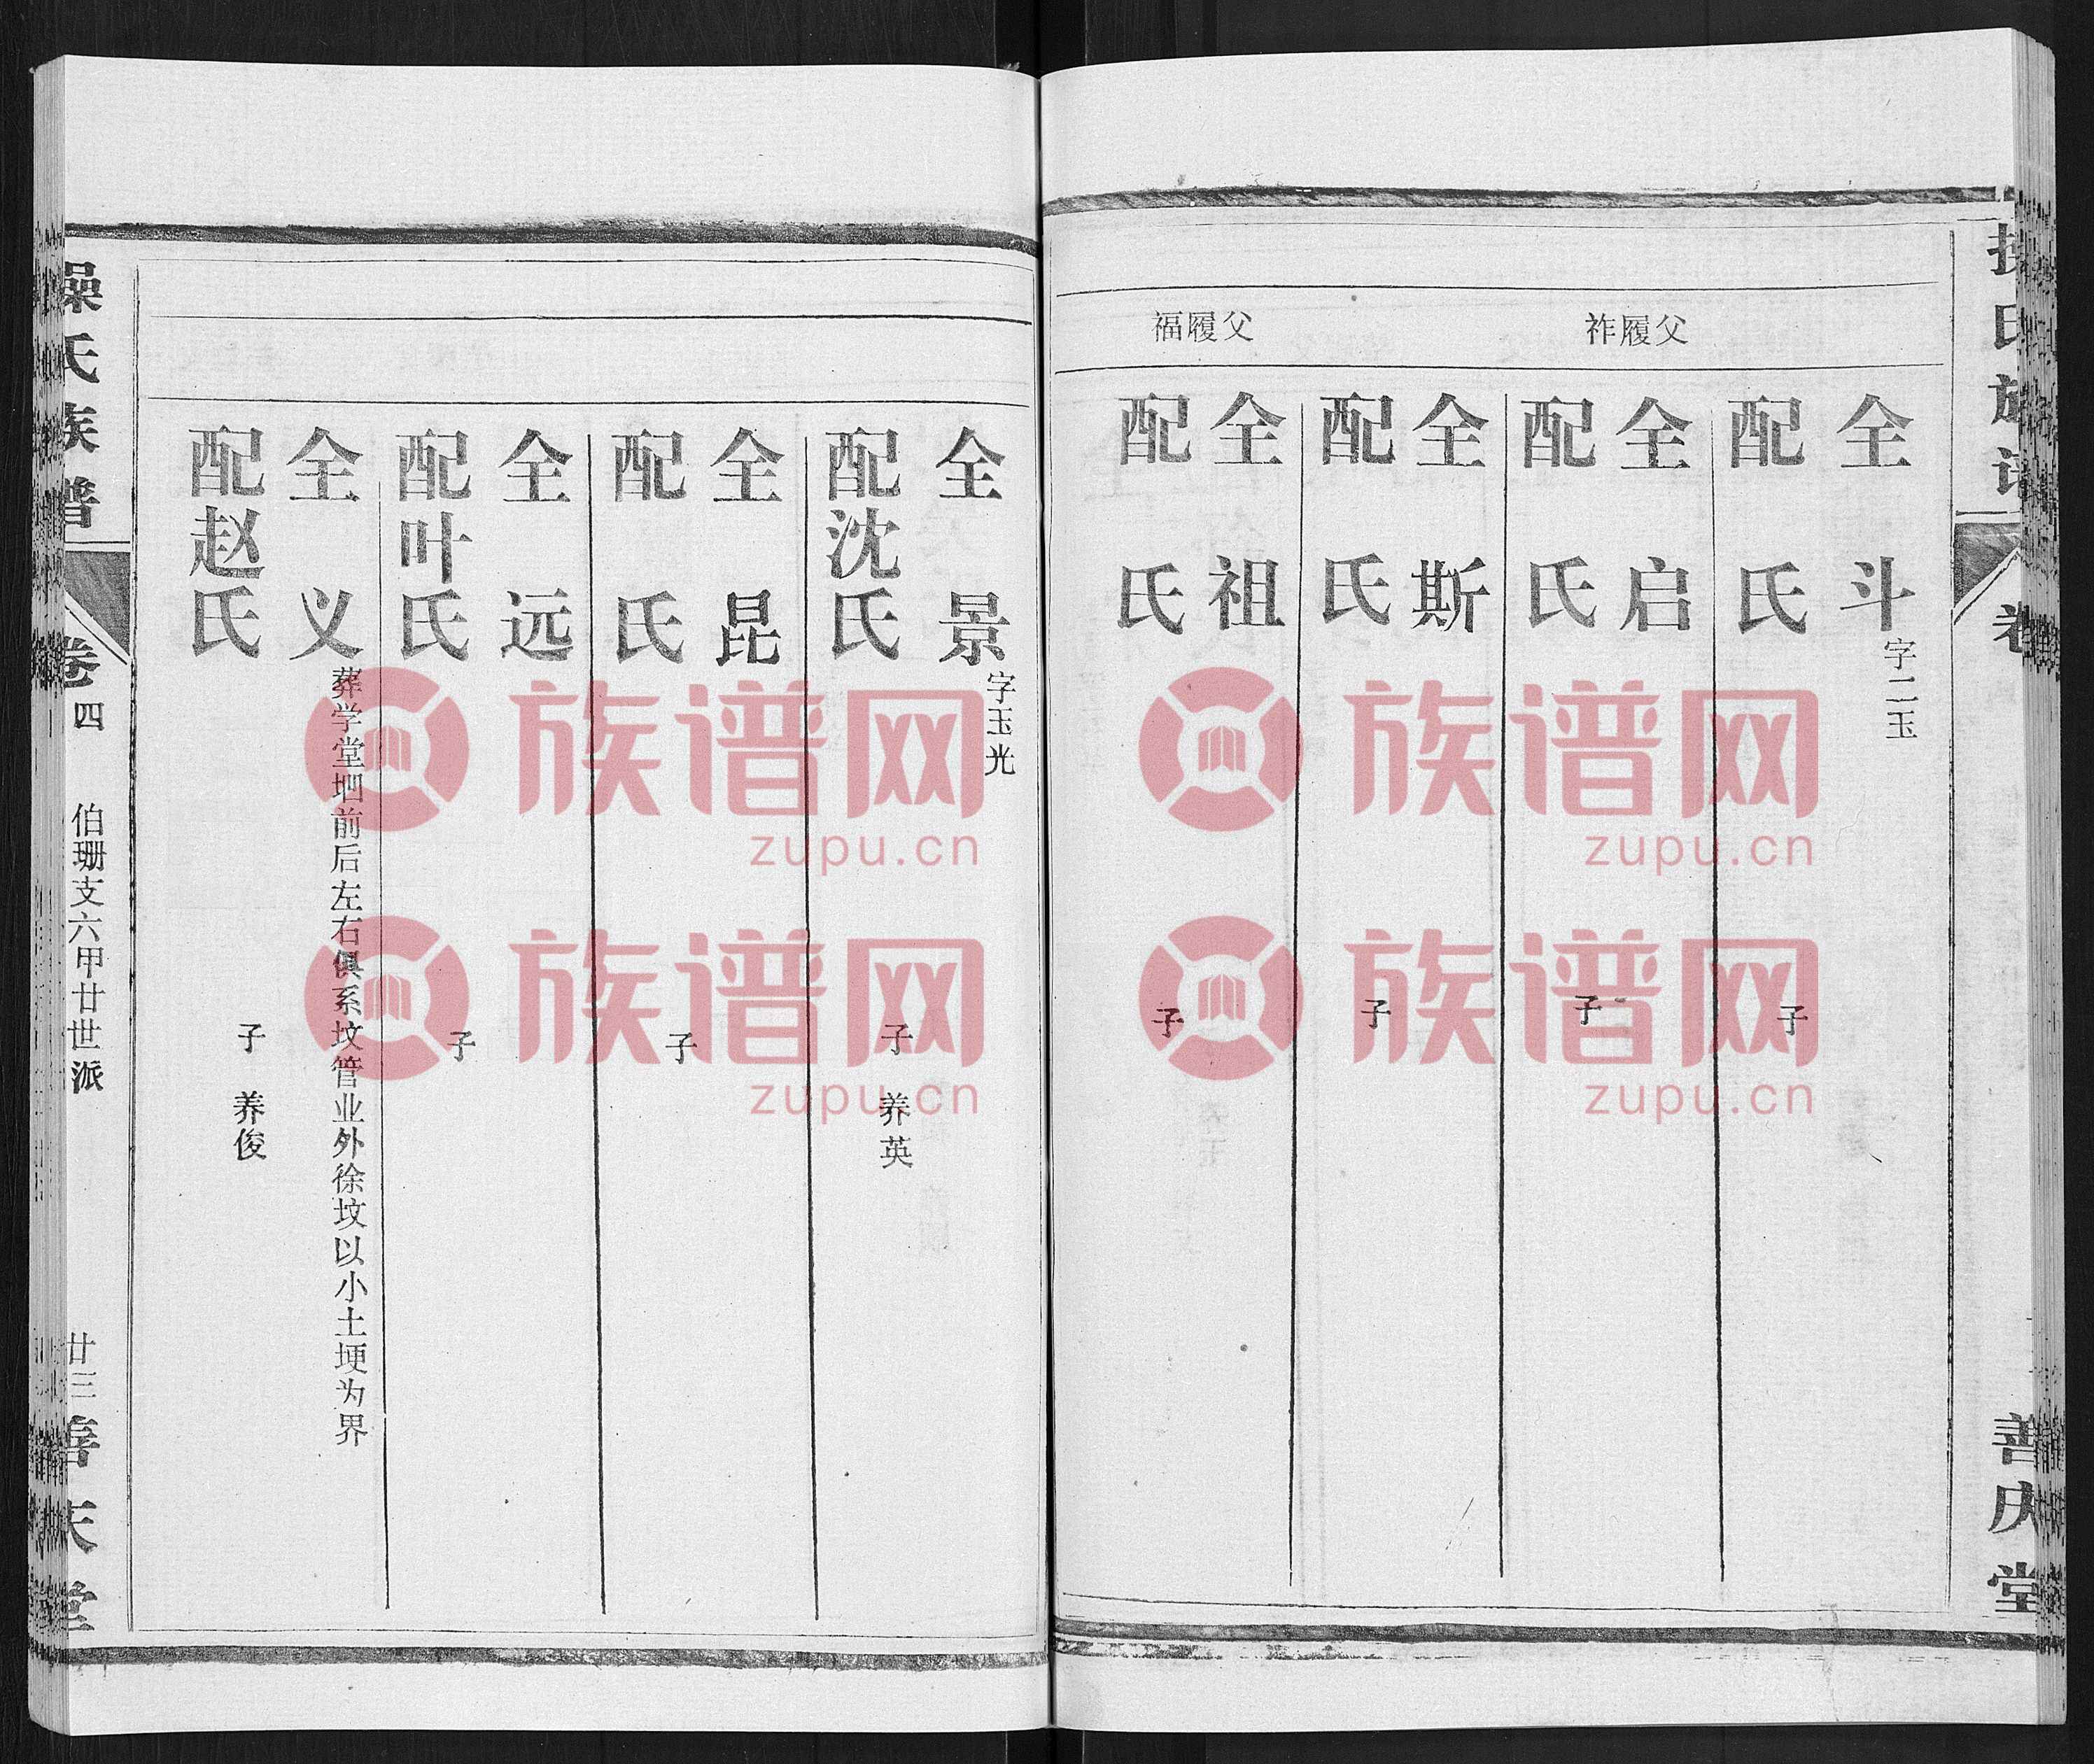 氏族
善庆堂
父履祚
全斗 字二玉
配氏 子
全启
配氏 子
全斯
配氏 子
父履福
全祖
配氏 子
全景 字玉光
配沈氏 子 养英
全昆
配氏 子
全远
配叶氏 子
全义 葬学堂垇前后左右俱系坟管业外徐坟以小土埂为界
配赵氏 子 养俊
操氏族谱
卷四 伯珊支六甲廿世派 廿三
善庆堂
族谱网
zupu.cn
族谱网
zupu.cn
族谱网
zupu.cn
族谱网
zupu.cn